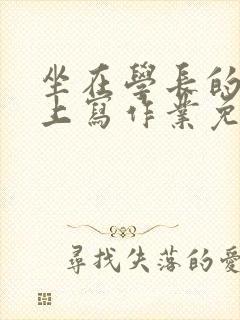 坐在學長的
上寫作業免
尋找失落的愛